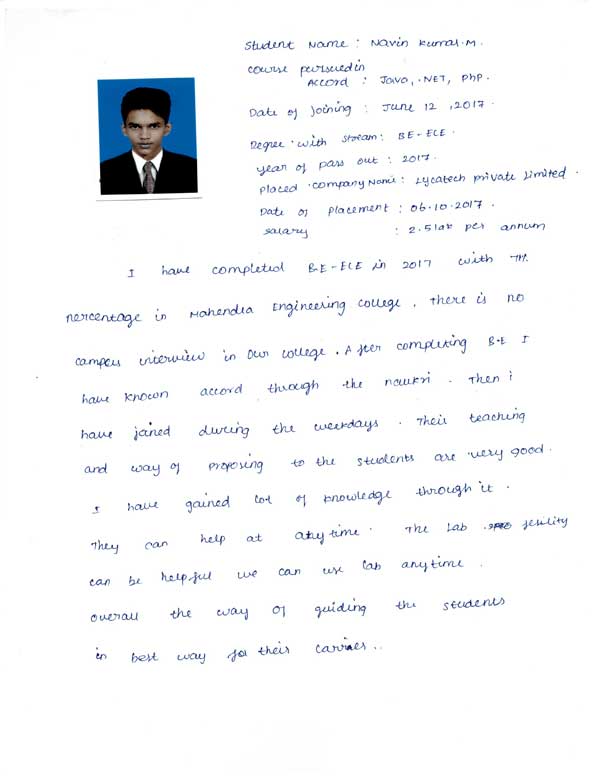 Student Name : Navin Kumar.M.
course persuedin
Accord : Java, .NET, PhP.
Date of Joining : June 12 ,2017.
Degree with Stream: BE-ECE.
year of pass out : 2017.
placed company Name : Lycatech private Limited.
Date of placement : 06.10.2017.
salary : 2.5lak per annum
I have completed B.E-ECE in 2017 with 74.
percentage in Mahendra Engineering College. There is no
campus interview in Our college. After completing B.E I
have known accord through the naukri. Then i
have joined during the weekdays. Their teaching
and way of proposing to the students are very good.
I have gained lot of knowledge through it.
They can help at any time. The Lab fesility
can be helpful we can use lab anytime.
overall the way of guiding the students
in best way for their carrier..